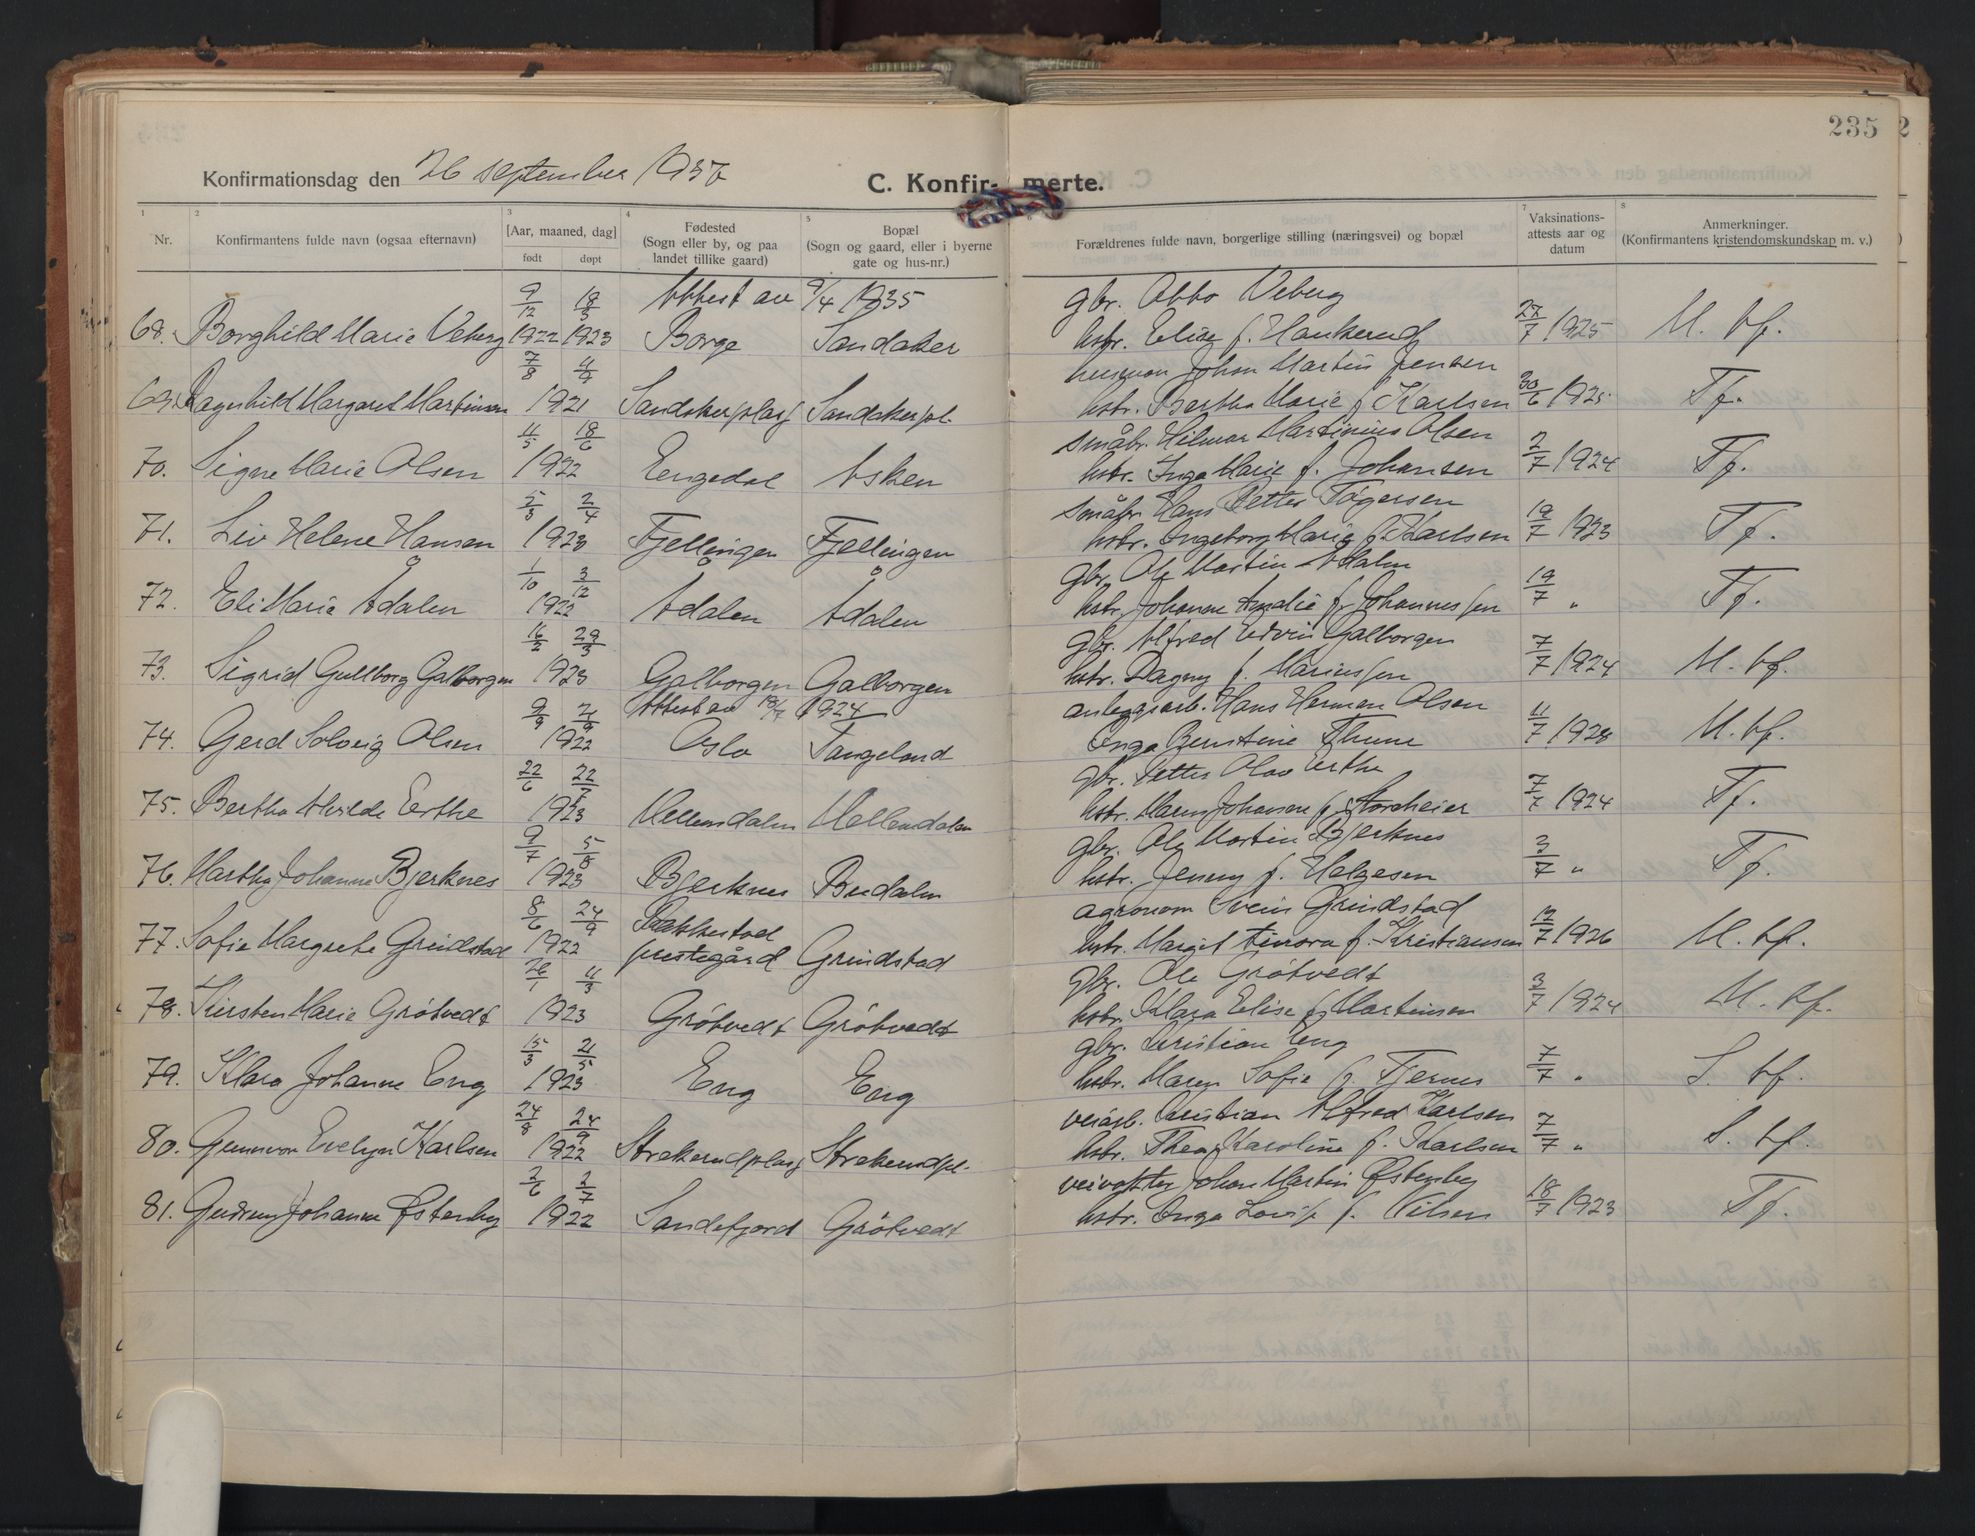 235
2
Konfirmationsdag den 26 september 1937
C. Konfir- merte.
1 2 3 4 5 6 7 8
Nr.
Konfirmantens fulde navn (ogsaa efternavn)
[Aar, maaned, dag]
født døpt
Fødested
(Sogn eller by, og paa
landet tillike gaard)
Bopæl
(Sogn og gaard, eller i byerne
gate og hus-nr.)
Forældrenes fulde navn, borgerlige stilling (næringsvei) og bopæl
Vaksinations-
attests aar og
datum
Anmerkninger.
(Konfirmantens kristendomskundskap m. v.)
9/12 18/3 Attest av 9/4 1935 gbr. Otto Veberg
68. Borghild Marie Veberg 1922 1923 Borge Sandaker hstr. Elise f. Haukerud 27/7 1925 M. tf.
7/8 4/9 husmann Johan Martin Jensen
69. Ragnhild Margaret Martinsen 1921 Sandakerplass Sandakerpl. hstr. Bertha Marie f. Karlsen 30/6 1925 Tf.
4/5 18/6 småbr. Hilmar Martinius Olsen
70. Signe Marie Olsen 1922 Engedal Asken hstr. Inga Marie f. Johansen 2/7 1924 Tf.
5/3 2/4 småbr. Hans Petter Tøgersen
71. Liv Helene Hansen 1923 Fjellingen Fjellingen hstr. Ingeborg Marie f. Karlsen 19/7 1923 Tf.
1/10 3/12 gbr. Ole Martin Ådalen
72. Eli Marie Ådalen 1922 Ådalen Ådalen hstr. Johanne Amalie f. Johannessen 19/7 " Tf.
16/2 29/3 gbr. Alfred Edvin Galborgen
73. Sigrid Gullborg Galborgen 1923 Galborgen Galborgen hstr. Dagny f. Mariussen 7/7 1924 M. tf.
9/9 Attest av 1924 anleggsarb. Hans Herman Olsen
74. Gerd Solveig Olsen 1922 Oslo Tangeland Inga Thune 11/7 1928 M. tf.
22/6 22/7 gbr. Petter Olav Erthe
75. Bertha Alvilde Erthe 1923 Mellemdalen Mellemdalen hstr. Johansen f. Storeheier 7/7 1924 Tf.
9/7 5/8 gbr. Ole Martin Bjerknes
76. Martha Johanne Bjerknes 1923 Bjerknes Budalen hstr. Jenny f. Helgesen 3/7 " Tf.
8/6 24/9 Rakkestad agronom Svein Grindstad
77. Sofie Margrethe Grindstad 1922 prestegård Grindstad hstr. Margit Finora f. Kristiansen 12/7 1926 M. tf.
26/1 4/3 gbr. Ole Grøtvedt
78. Kirsten Marie Grøtvedt 1923 Grøtvedt Grøtvedt hstr. Klara Elise f. Martinsen 3/7 1924 M. tf.
15/3 21/5 gbr. Kristian Eng
79. Klara Johanne Eng 1923 Eng Eng hstr. Maren Sofie f. Tjernes 7/7 " S. tf.
24/8 24/9 veiarb. Kristian Alfred Karlsen
80. Gunnvor Evelyn Karlsen 1922 Strekerudplass Strekerudpl. hstr. Thea Karoline f. Karlsen 7/7 " S. tf.
2/6 2/7 veivokter Johan Martin Østenby
81. Gudrun Johanne Østenby 1922 Sandefjord Grøtvedt hstr. Inga Lovise f. Nilsen 18/7 1923 Tf.